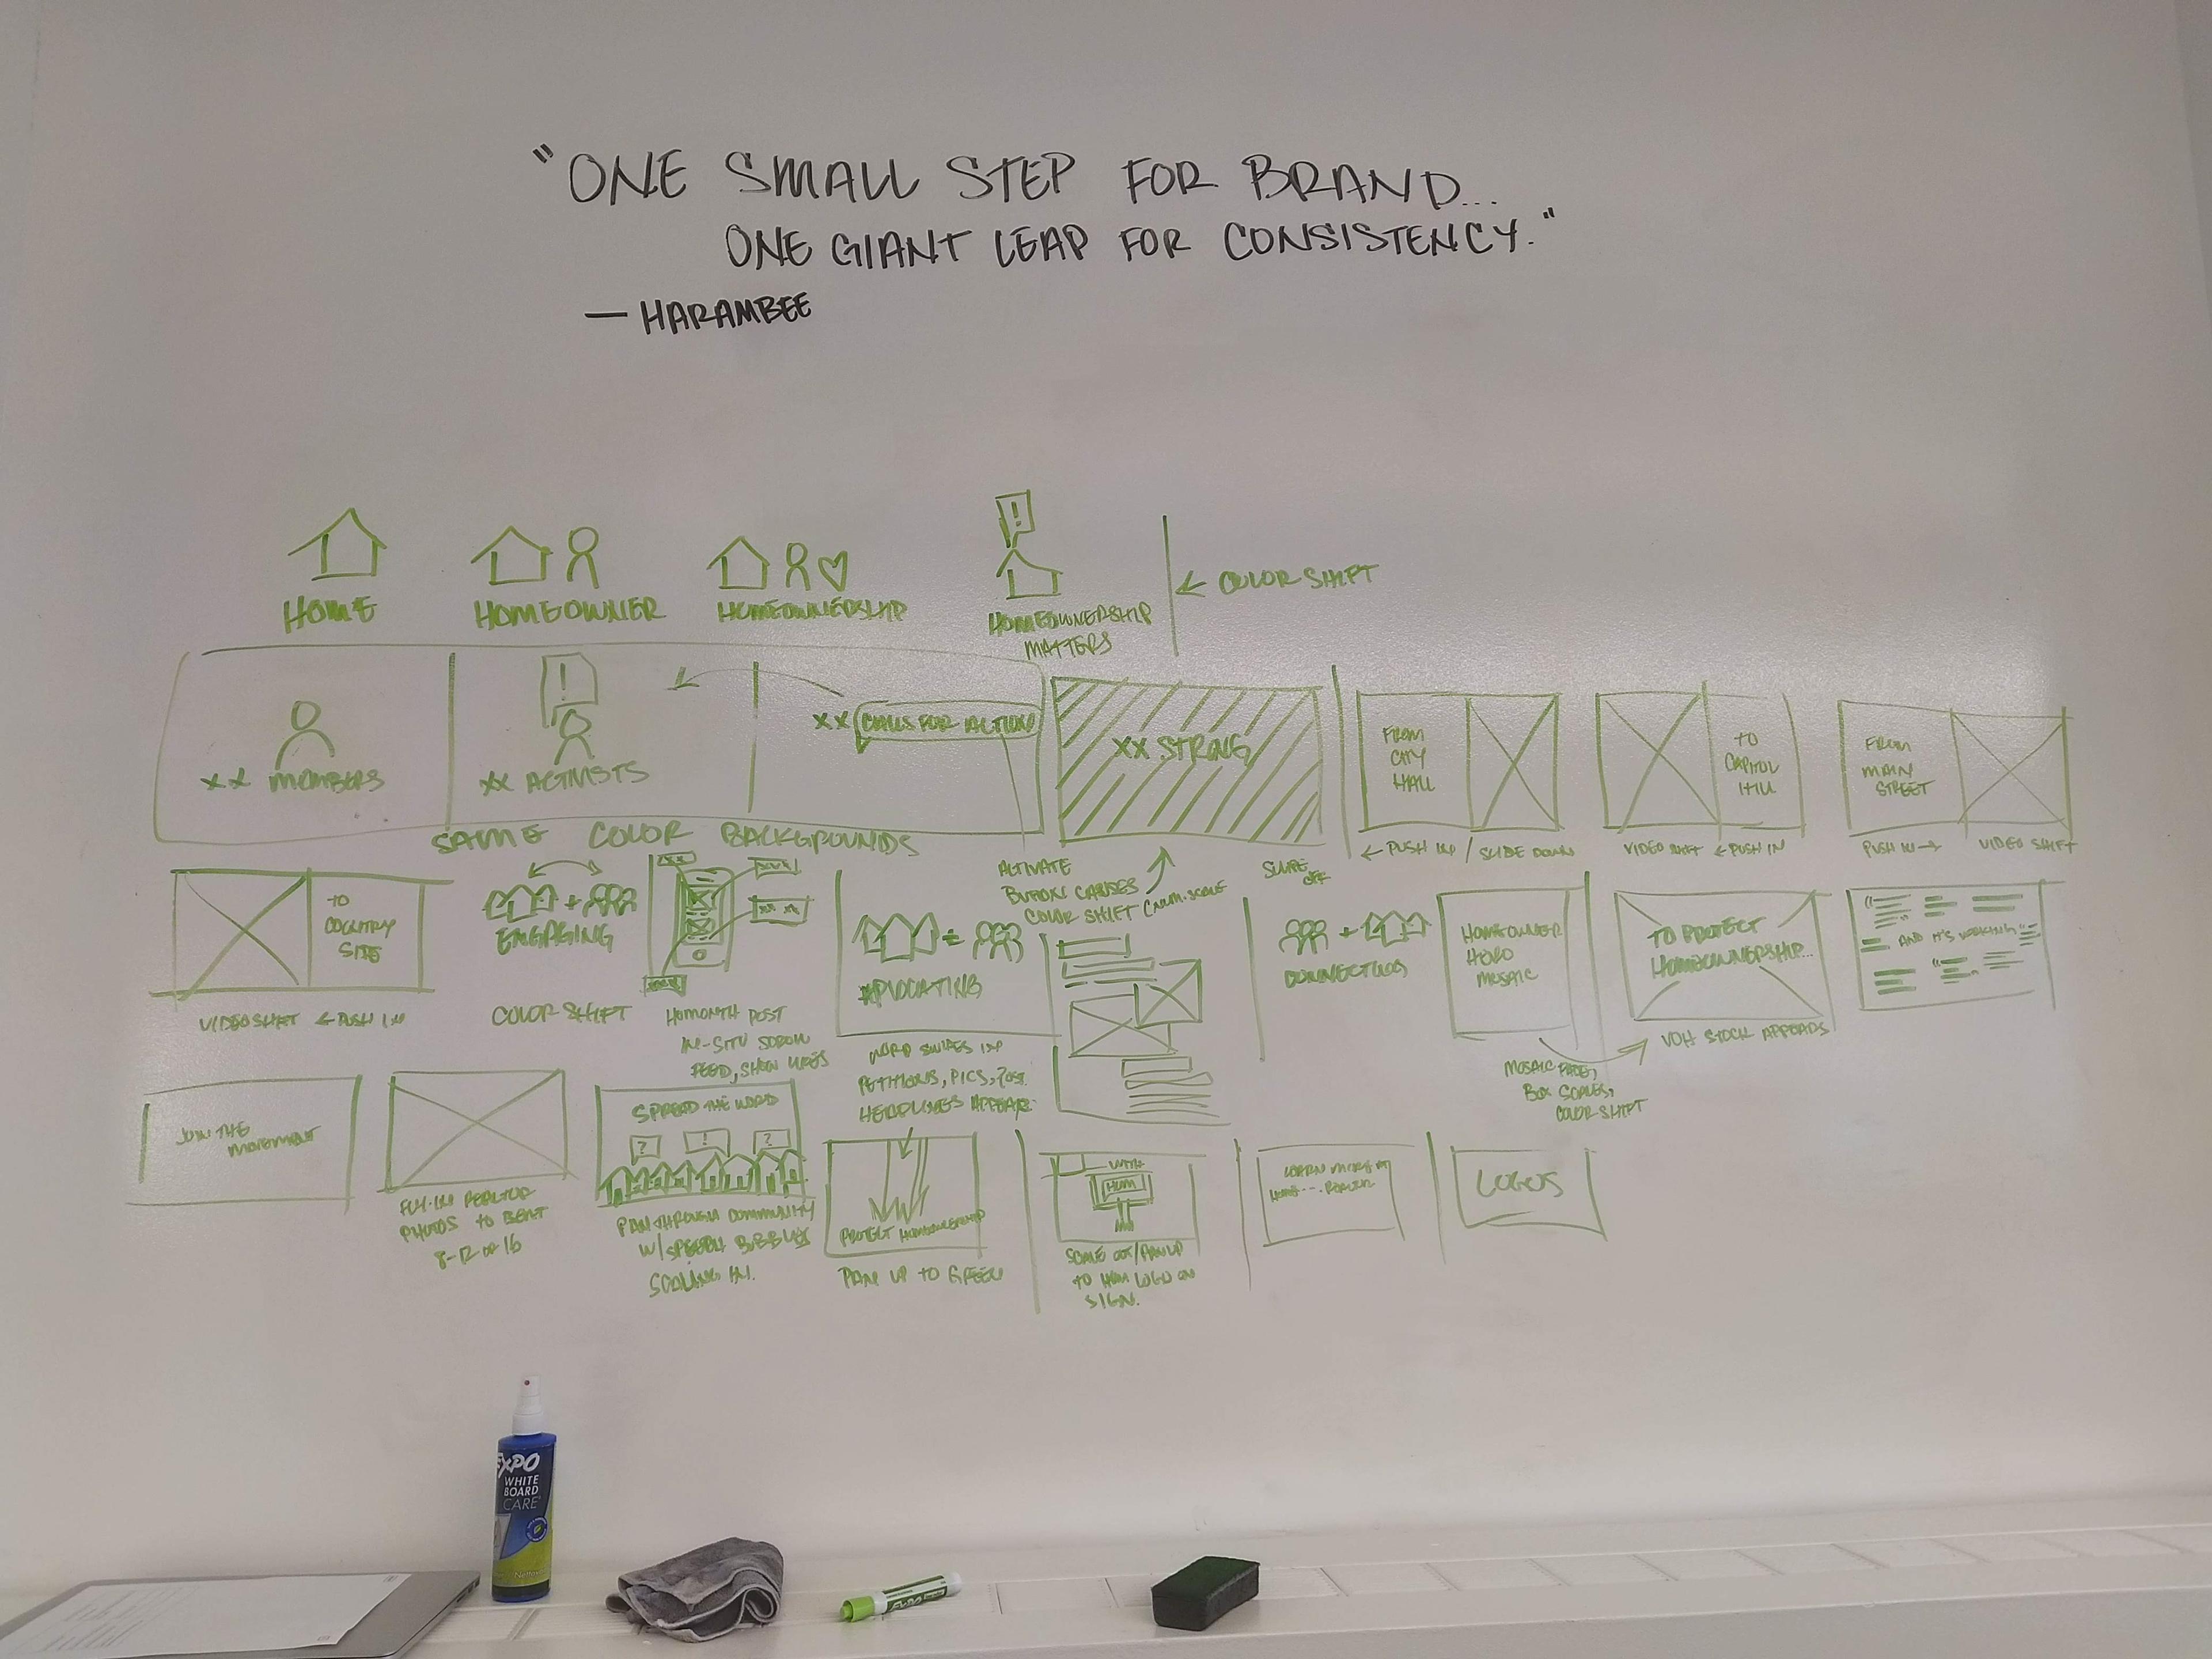 "ONE SMALL STEP FOR BRAND...
ONE GIANT LEAP FOR CONSISTENCY."
— HARAMBEE
!
HOME
HOMEOWNER
HOMEOWNERSHIP
HOMEOWNERSHIP
MATTERS
← COLOR SHIFT
XX MEMBERS
!
XX ACTIVISTS
XX CALLS FOR ACTION
SAME COLOR BACKGROUNDS
XX STRONG
ACTIVATE
BUTTON CAUSES
COLOR SHIFT
SWIPE
OFF
FROM
CITY
HALL
← PUSH IN / SLIDE DOWN
TO
CAPITOL
HILL
VIDEO SHIFT ← PUSH IN
FROM
MAIN
STREET
PUSH IN → VIDEO SHIFT
TO
COUNTRY
SIDE
VIDEO SHIFT ← PUSH IN
+
ENGAGING
COLOR SHIFT
POST
IN-SITU SCROLL
FEED, SHOW LIKES
ADVOCATING
WORD SWIPES IN
PETITIONS, PICS, POST
HEADLINES APPEAR
+
CONNECTING
HOMEOWNER
HERO
MOSAIC
MOSAIC FADE,
BOX SCALES,
COLOR SHIFT
TO PROTECT
HOMEOWNERSHIP...
VOH STOCK APPEARS
AND IT'S WORKING
JOIN THE
MOVEMENT
FLY-IN REALTOR
PHOTOS TO BEAT
8-12 OR 16
SPREAD THE WORD
? ! ?
PAN THROUGH COMMUNITY
W/ SPEECH BUBBLES
SCALING IN.
PROTECT HOMEOWNERSHIP
PAN UP TO GREEN
WITH
HOM
SCALE OUT/PAN UP
TO HOM LOGO ON
SIGN.
LEARN MORE AT
LOGOS
EXPO
WHITE
BOARD
CARE
EXPO